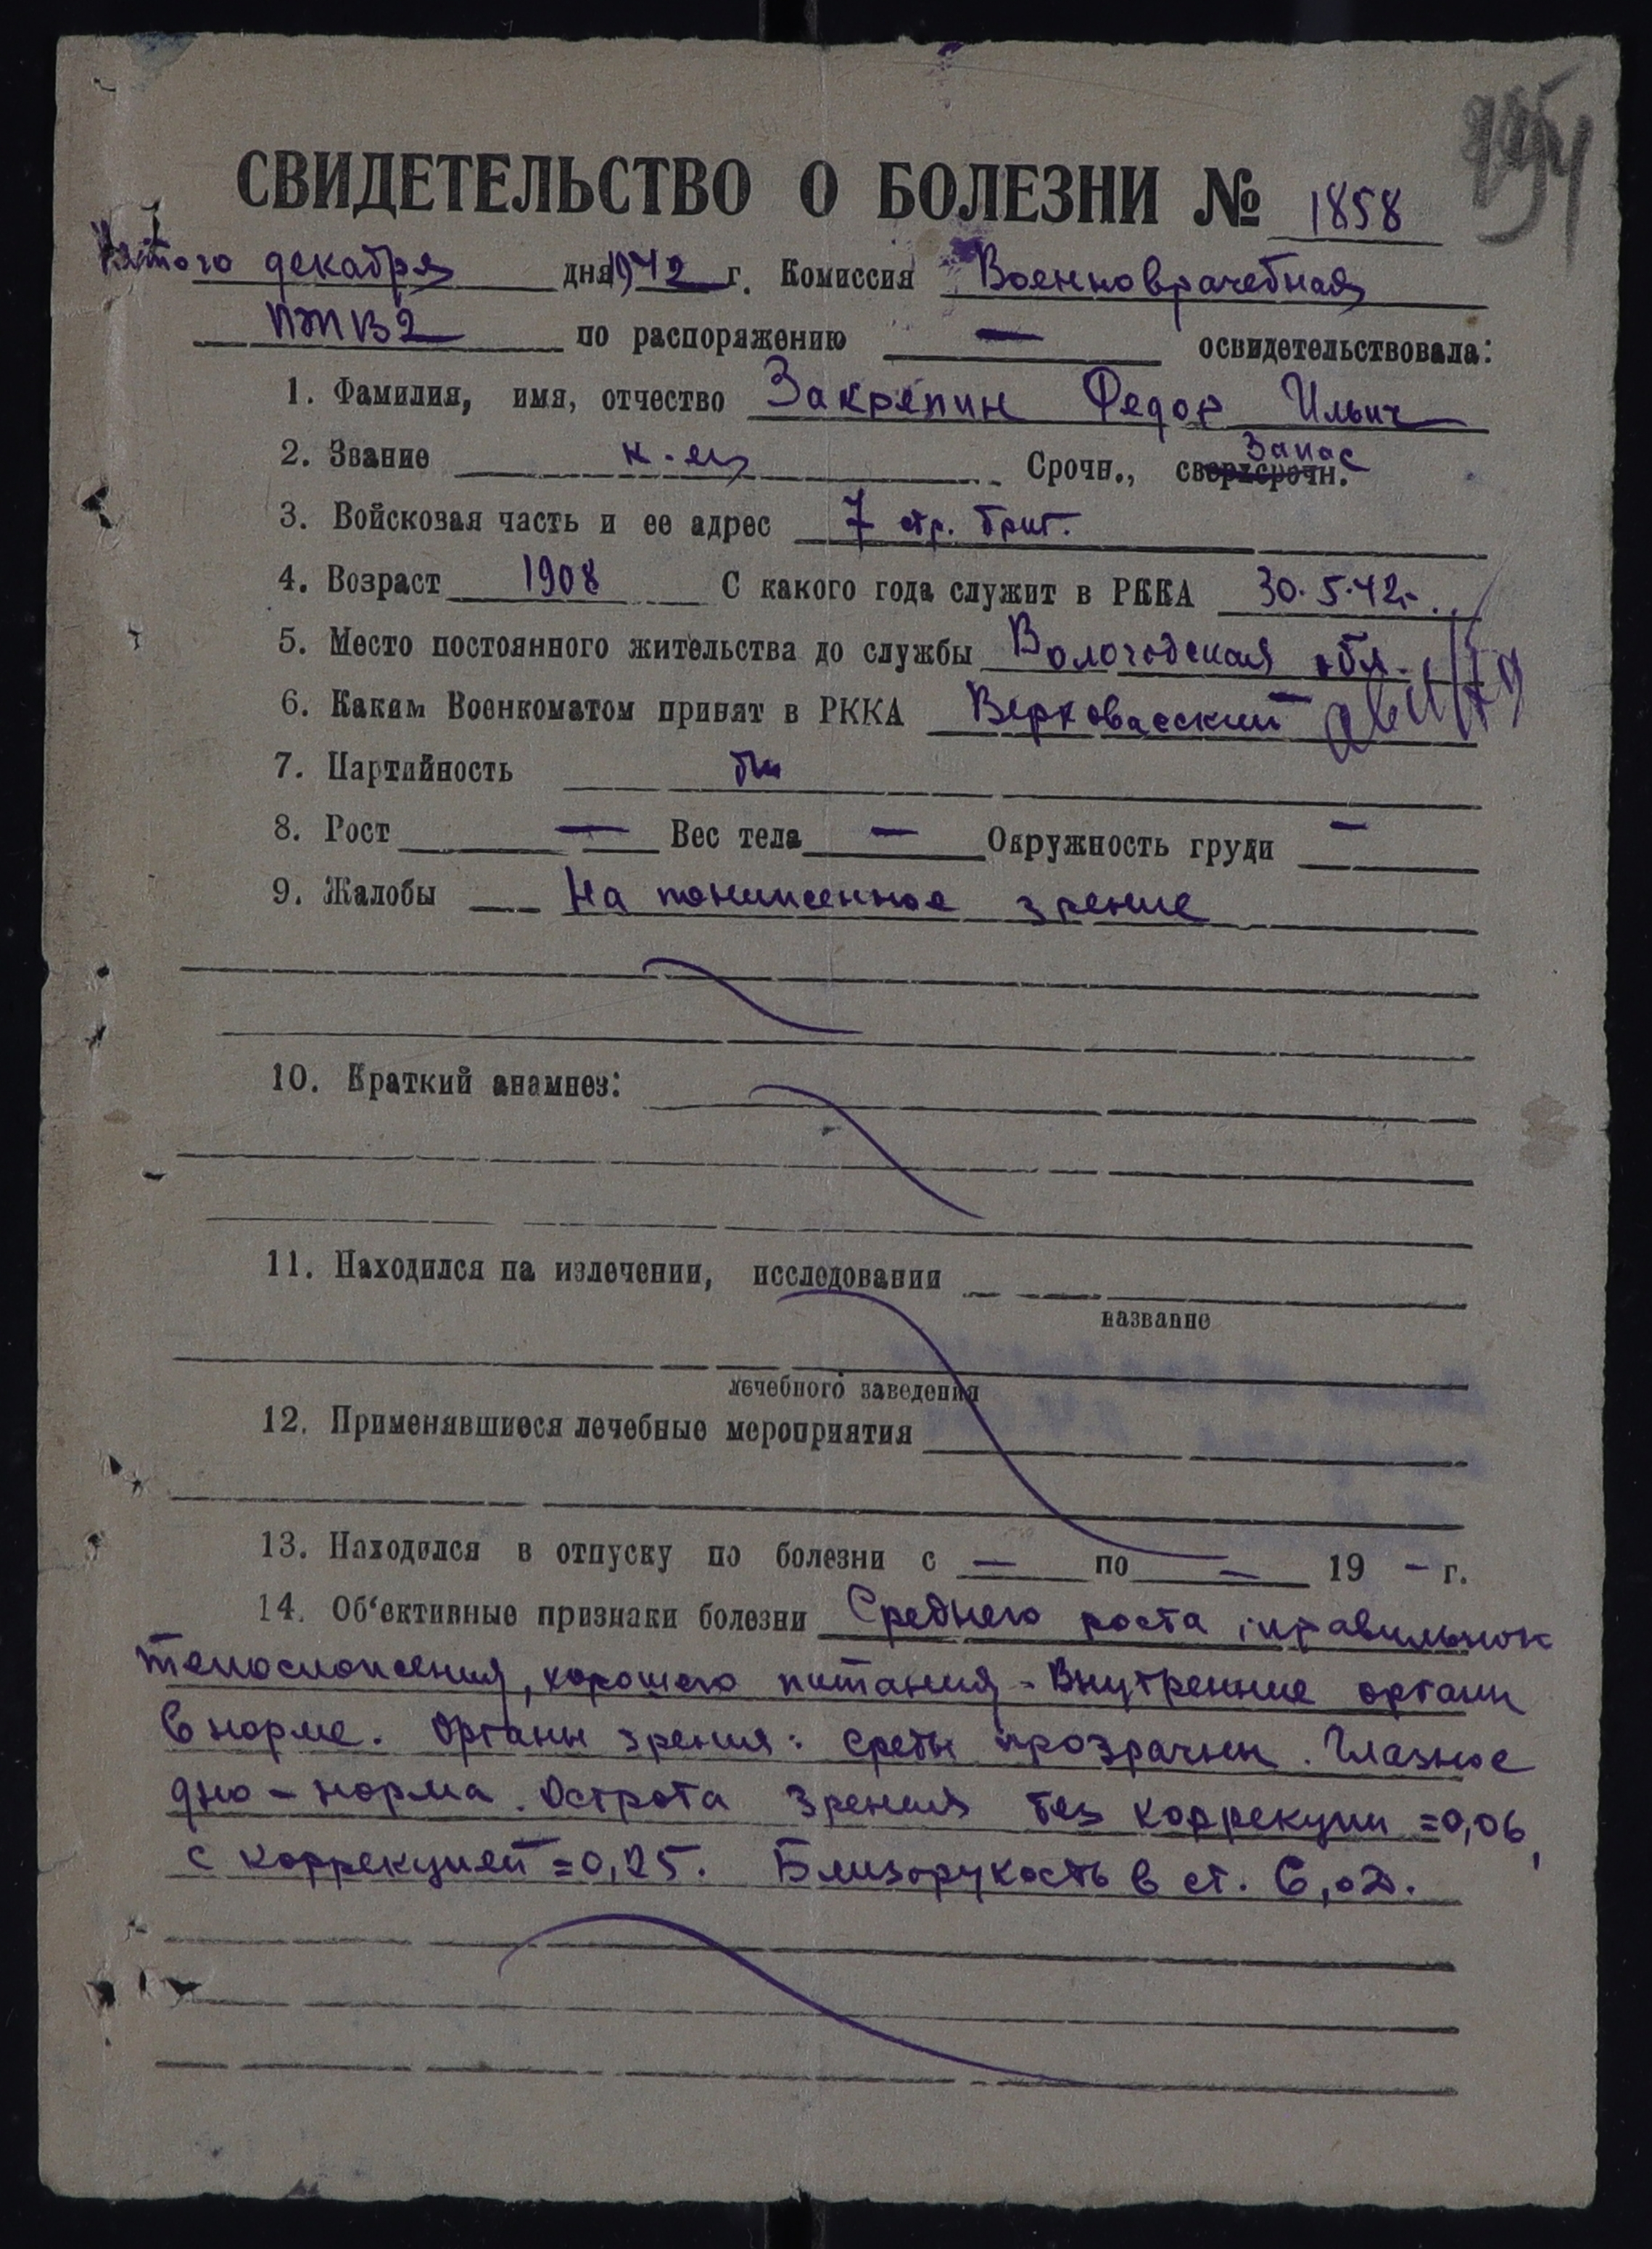 СВИДЕТЕЛЬСТВО О БОЛЕЗНИ № 1858
Пятого декабря дня 1942 г. Комиссия Военноврачебная
по распоряжению — освидетельствовала:
1. Фамилия, имя, отчество Закряпин Федор Ильич
2. Звание к-ец Срочн., сверхсрочн. Запас
3. Войсковая часть и ее адрес 7 стр. бриг.
4. Возраст 1908 С какого года служит в РККА 30.5.42г.
5. Место постоянного жительства до службы Вологодская обл.
6. Каким Военкоматом принят в РККА Верховажский
7. Партийность бп
8. Рост — Вес тела — Окружность груди —
9. Жалобы На пониженное зрение
10. Краткий анамнез:
11. Находился на излечении, исследовании
название
лечебного заведения
12. Применявшиеся лечебные мероприятия
13. Находился в отпуску по болезни с — по — 19 — г.
14. Об'ективные признаки болезни Среднего роста, правильного
телосложения, хорошего питания. Внутренние органы
в норме. Органы зрения: среды прозрачны. Глазное
дно – норма. Острота зрения без коррекции =0,06,
с коррекцией =0,25. Близорукость в ст. 6,0D.